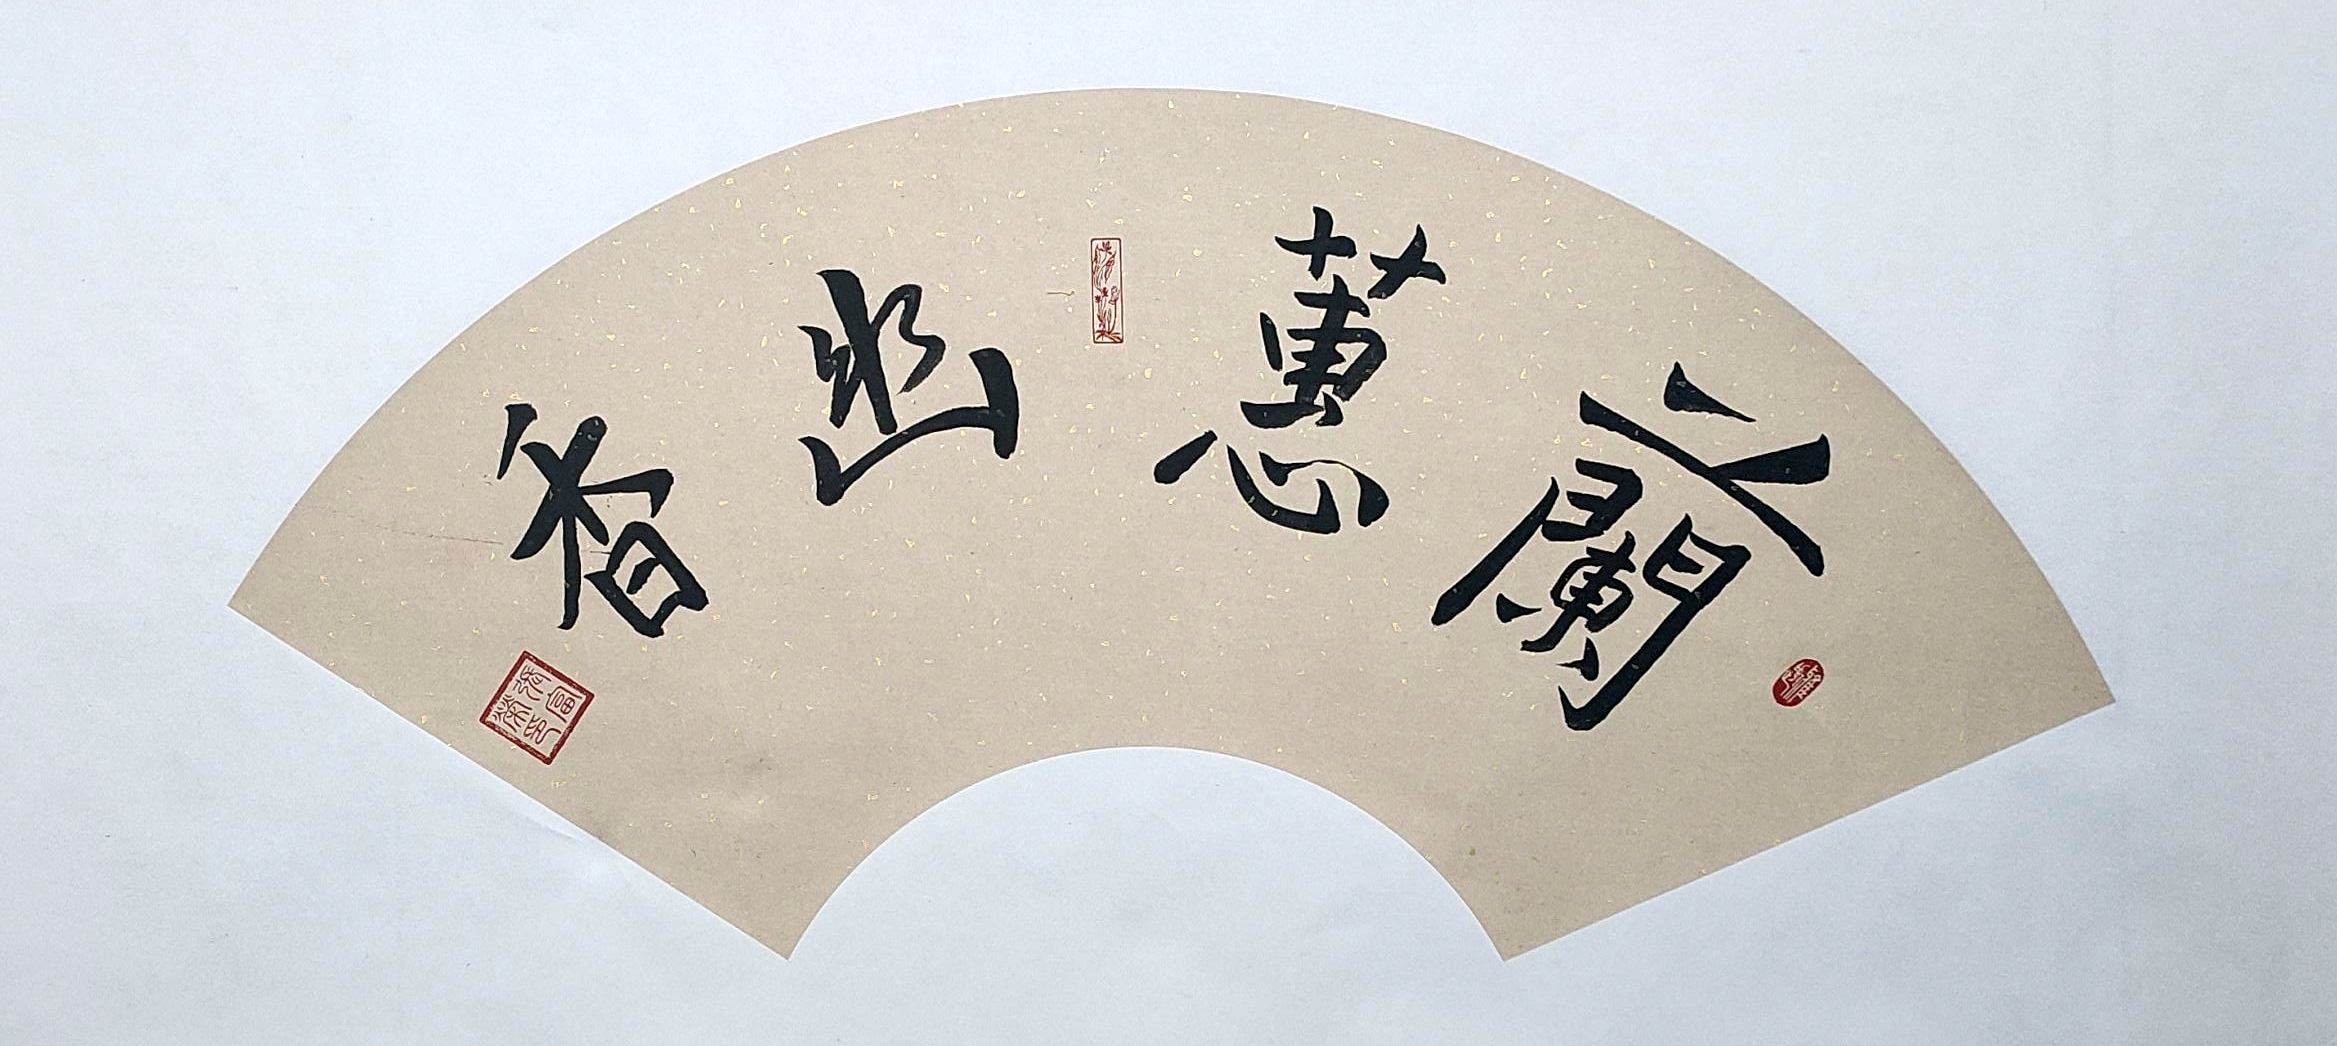 蘭蕙幽香